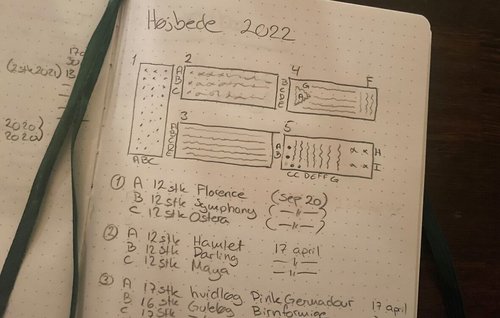 Højbede 2022
(2stk 2021)
2020)
2020)
1
2
3
4
5
A
B
C
F
G
A
H
I
ABC
CC DEFFG
① A 12 stk Florence (Sep 20)
B 12 stk Symphony (-11-)
C 12 stk Ostera (-11-)
② A 12 stk Hamlet 17 april
B 12 stk Darling -11-
C 12 stk Maya -11-
③ A 17 stk hvidløg 17 april
B 16 stk Guleløg Birnformige
C